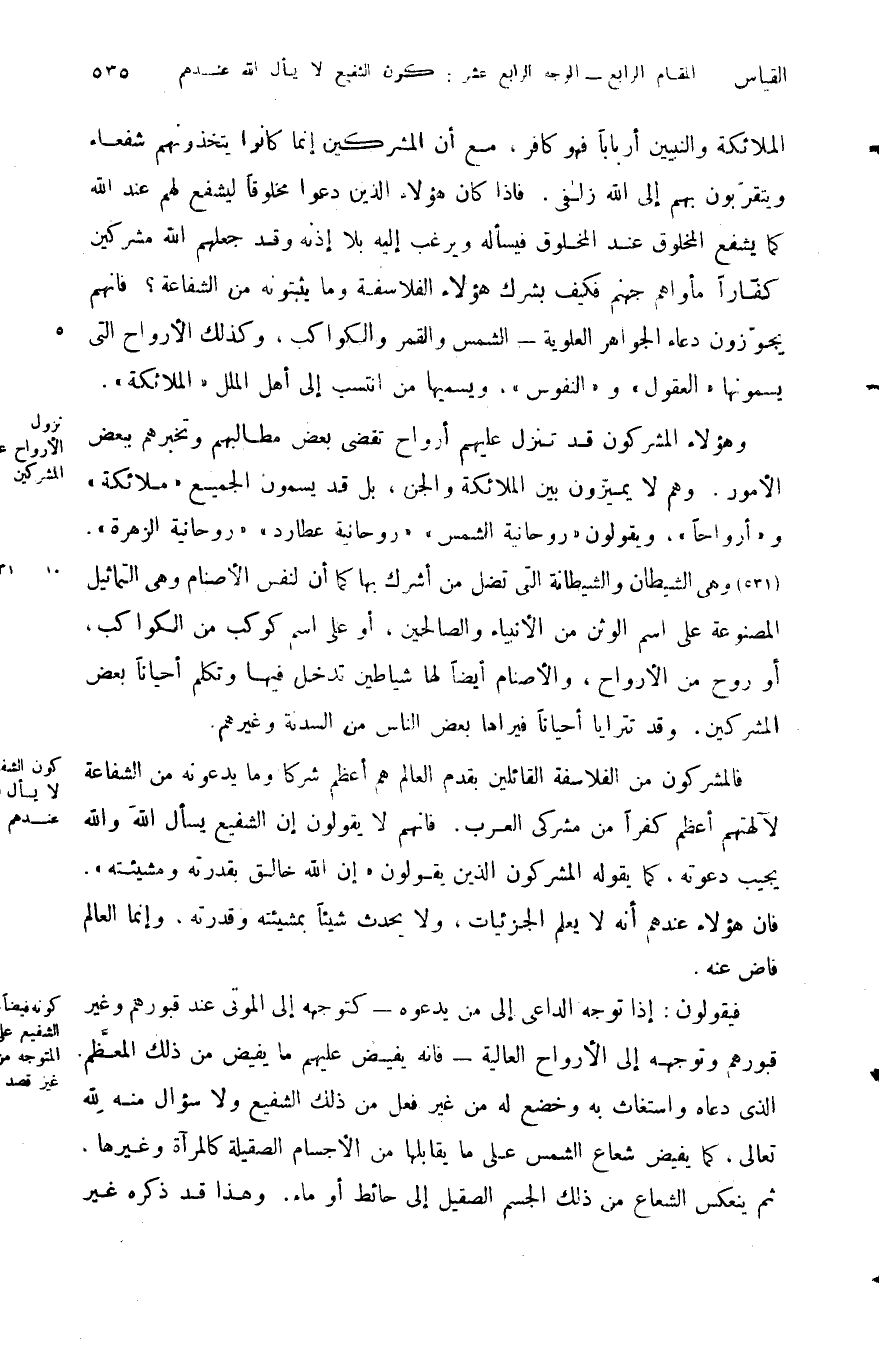 القياس المقام الرابع — الوجه الرابع عشر : كون الشفيع لا يسأل الله عندهم ٥٣٥
الملائكة والنبيين أرباباً فهو كافر ، مع أن المشركين إنما كانوا يتخذونهم شفعاء
ويتقرّبون بهم إلى الله زلفى . فاذا كان هؤلاء الذين دعوا مخلوقاً ليشفع لهم عند الله
كما يشفع المخلوق عند المخلوق فيسأله ويرغب إليه بلا إذنه وقد جعلهم الله مشركين
كفّاراً مأواهم جهنم فكيف بشرك هؤلاء الفلاسفة وما يثبتونه من الشفاعة ؟ فانهم
يجوّزون دعاء الجواهر العلوية — الشمس والقمر والكواكب ، وكذلك الأرواح التى
٥
يسمونها « العقول » و « النفوس » ، ويسميها من انتسب إلى أهل الملل « الملائكة » .
وهؤلاء المشركون قد تنزل عليهم أرواح تقضى بعض مطالبهم وتخبرهم ببعض
نزول
الأرواح
المشركين
الأمور . وهم لا يميّزون بين الملائكة والجن ، بل قد يسمون الجميع « ملائكة »
و « أرواحاً » ، ويقولون « روحانية الشمس » « روحانية عطارد » « روحانية الزهرة » .
(٥٣١) وهى الشيطان والشيطانة التى تضل من أشرك بها كما أن لنفس الأصنام وهى التماثيل
١٠
المصنوعة على اسم الوثن من الأنبياء والصالحين ، أو على اسم كوكب من الكواكب ،
أو روح من الأرواح ، والأصنام أيضاً لها شياطين تدخل فيها وتكلم أحياناً بعض
المشركين . وقد تترايا أحياناً فيراها بعض الناس من السدنة وغيرهم .
فالمشركون من الفلاسفة القائلين بقدم العالم هم أعظم شركا وما يدعونه من الشفاعة
كون الشف
لا يسأل
عندهم
لآلهتهم أعظم كفراً من مشركى العرب . فانهم لا يقولون إن الشفيع يسأل اللهَ والله
يجيب دعوته ، كما يقوله المشركون الذين يقولون « إن الله خالق بقدرته ومشيئته » .
فان هؤلاء عندهم أنه لا يعلم الجزئيات ، ولا يحدث شيئاً بمشيئته وقدرته ، وإنما العالم
فاض عنه .
فيقولون : إذا توجه الداعى إلى من يدعوه — كتوجهه إلى الموتى عند قبورهم وغير
كونه فيضاً
الشفيع على
المتوجه من
غير قصد
قبورهم وتوجهه إلى الأرواح العالية — فانه يفيض عليهم ما يفيض من ذلك المعظَّم
الذى دعاه واستغاث به وخضع له من غير فعل من ذلك الشفيع ولا سؤال منه لِله
تعالى ، كما يفيض شعاع الشمس على ما يقابلها من الأجسام الصقيلة كالمرآة وغيرها .
ثم ينعكس الشعاع من ذلك الجسم الصقيل إلى حائط أو ماء . وهذا قد ذكره غير